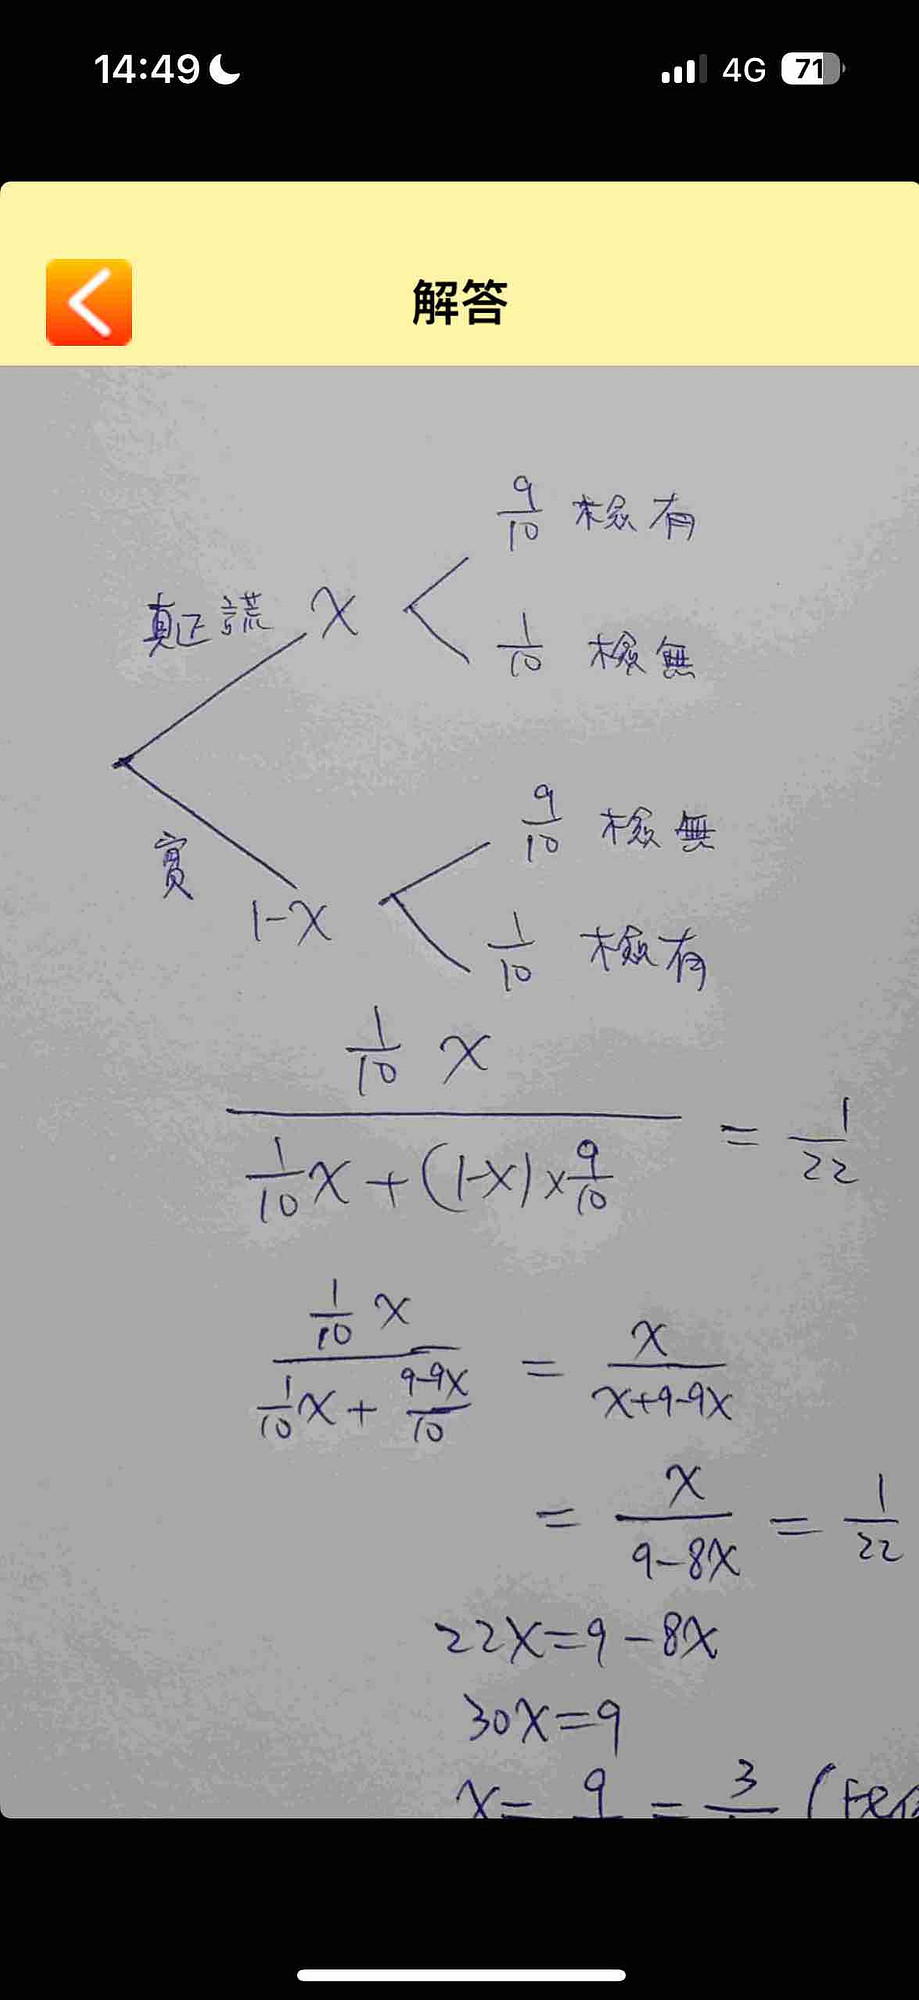 14:49
4G
71
解答
9/10 檢有
真正謊 x
1/10 檢無
9/10 檢無
實
1-x
1/10 檢有
(1/10 x)/(1/10 x + (1-x) × 9/10) = 1/22
(1/10 x)/(1/10 x + (9-9x)/10) = x/(x+9-9x)
= x/(9-8x) = 1/22
22x=9-8x
30x=9
x= 9 = 3 (